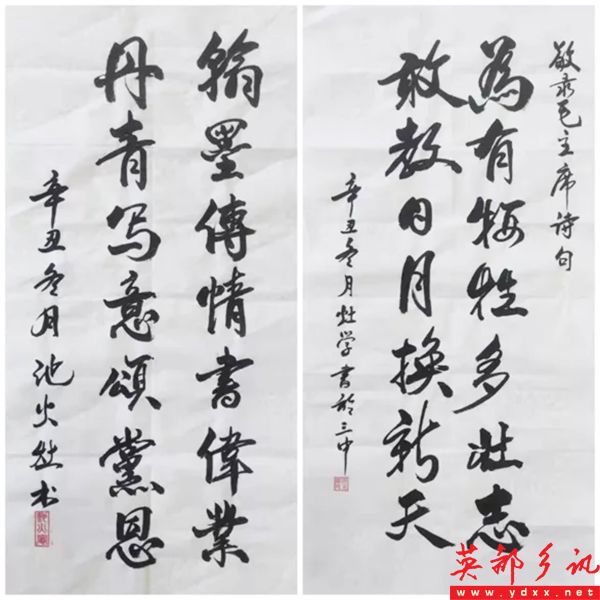 翰墨傳情書偉業
丹青写意頌黨恩
辛丑冬月池火灶书
敬录毛主席诗句
為有牺牲多壮志
敢教日月换新天
辛丑冬月灶学書於三中
英都乡讯
www.ydxx.net